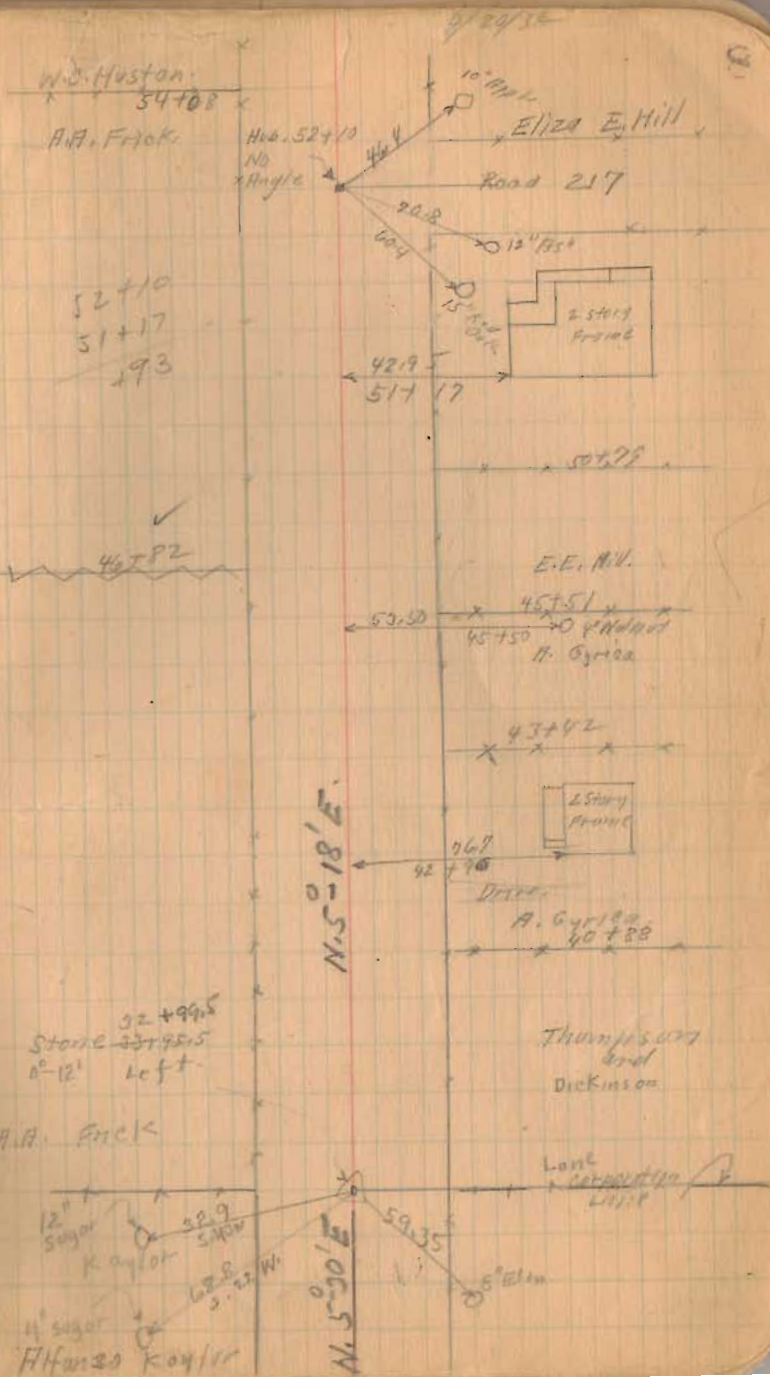 9/29/32
W.O. Huston.
54+08
A.A. Frick
Hub. 52+10
No
Angle
46.4
10"
Eliza E. Hill
Road 217
20.8
12" Ash
60.4
15"
Red
Oak
2 Story
Frame
52+10
51+17
+93
42.95
51+17
50+79
46+82
E.E. Hill.
45+51
53.50
45+50
4" Walnut
43+42
2 Story
Frame
76.7
42+96
Drive.
40+88
N.5°-18'E.
32+99.5
Stone 33+95.5
0°-12' Left.
Thompson
and
Dickinson
A.A. Frick
Lane
Corporation
Line
12"
Sugar
Kaylor
32.9
59.35
68.8
8" Elm
4" Sugar
Alfanso Kaylor
N.5°-30'E